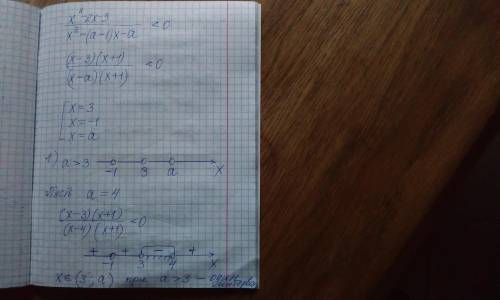 x²-2x-3 / x²-(a-1)x-a < 0
(x-3)(x+1) / (x-a)(x+1) < 0
[ x=3
x=-1
x=a
1) a>3 -1 3 a x
Пусть a=4
(x-3)(x+1) / (x-4)(x+1) < 0
+ + - +
-1 3 4 x
x∈(3; a) при a>3 - один
интервал